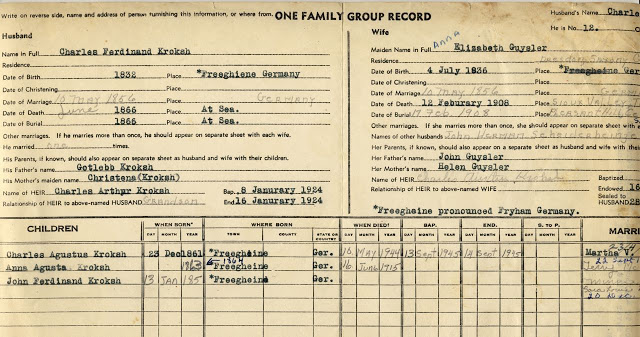 Write on reverse side, name and address of person furnishing this information, or where from. ONE FAMILY GROUP RECORD
Husband's Name Charle
He is No. 12.
Husband
Name in Full Charles Ferdinand Kroksh
Residence
Date of Birth 1832 Place *Freeghiene Germany
Date of Christening Place
Date of Marriage 10 May 1856 Place Germany
Date of Death June 1866 Place At Sea.
Date of Burial 1866 Place At Sea.
Other marriages. If he marries more than once, he should appear on separate sheet with each wife.
He married one times.
His Parents, if known, should also appear on separate sheet as husband and wife with their children.
His Father's name Gotlebb Kroksh
His Mother's maiden name Christena(Kroksh)
Name of HEIR Charles Arthur Kroksh Bap. 8 Janurary 1924
Relationship of HEIR to above-named HUSBAND Grandson End 16 Janurary 1924
Wife
Anna
Maiden Name in Full Elizabeth Guysler
Residence
Date of Birth 4 July 1836 Place *Freegheine Ger
Date of Christening Place
Date of Marriage 10 May 1856 Place Germ
Date of Death 12 Feburary 1908 Place Sioux Valley
Date of Burial Feb 1908 Place Pleasant
Other marriages. If she marries more than once, she should appear on separate sheet
Names of other husbands John Herman
Her Parents, if known, should also appear on separate sheet as husband and wife
Her Father's name John Guysler
Her Mother's name Helen Guysler
Name of HEIR Charles Arthur Kroksh Baptized
Relationship of HEIR to above-named WIFE Endowed 16
Sealed to
HUSBAND 28
*Freegheine pronounced Fryham Germany.
CHILDREN WHEN BORN WHERE BORN WHEN DIED BAP. END. S. to P. MARRI
DAY MONTH YEAR TOWN COUNTY STATE OR COUNTRY DAY MONTH YEAR DAY MONTH YEAR DAY MONTH YEAR DAY MONTH YEAR
Charles Agustus Kroksh 23 Dec 1861 *Freegheine Ger. May 1944 13 Sept 1945 14 Sept 1945 Martha V.
Anna Agusta Kroksh 1963 1864 *Freegheine Ger. 16 June 1915
John Ferdinand Kroksh 13 Jan 185 *Freegheine Ger.